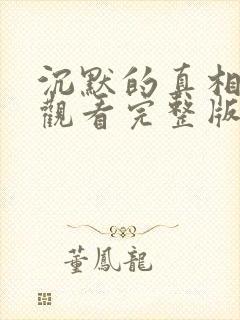 沉默的真相
觀看完整版
董鳳龍